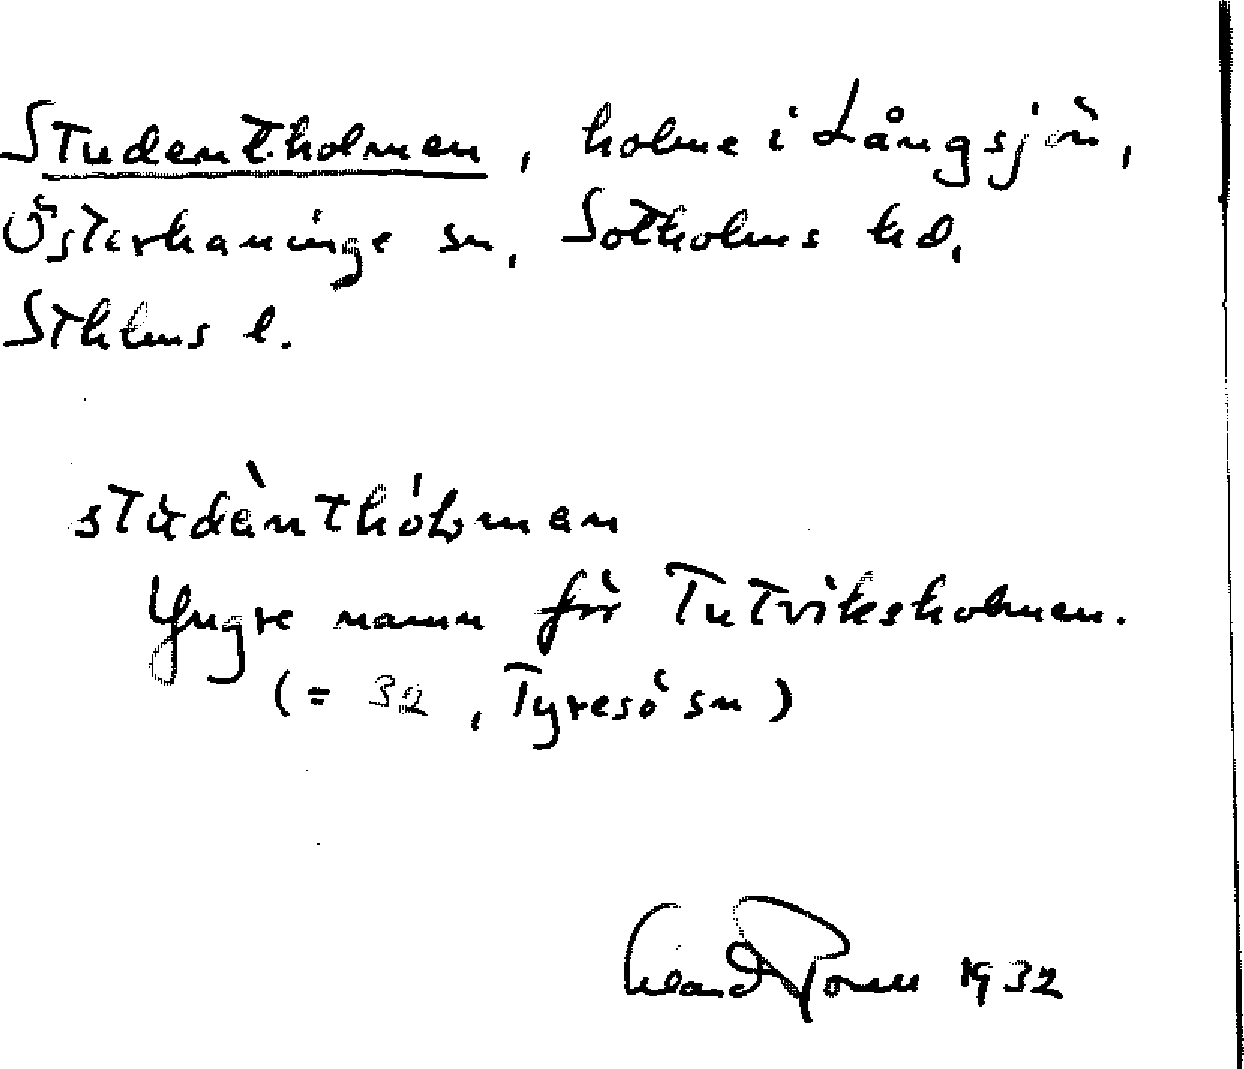 Studentholmen, holme i Långsjön,
Österhaninge sn, Sotholms hd,
Sthlms l.
stùdènthólmen
Yngre namn för Tutviksholmen.
(= 32, Tyresö sn)
1932